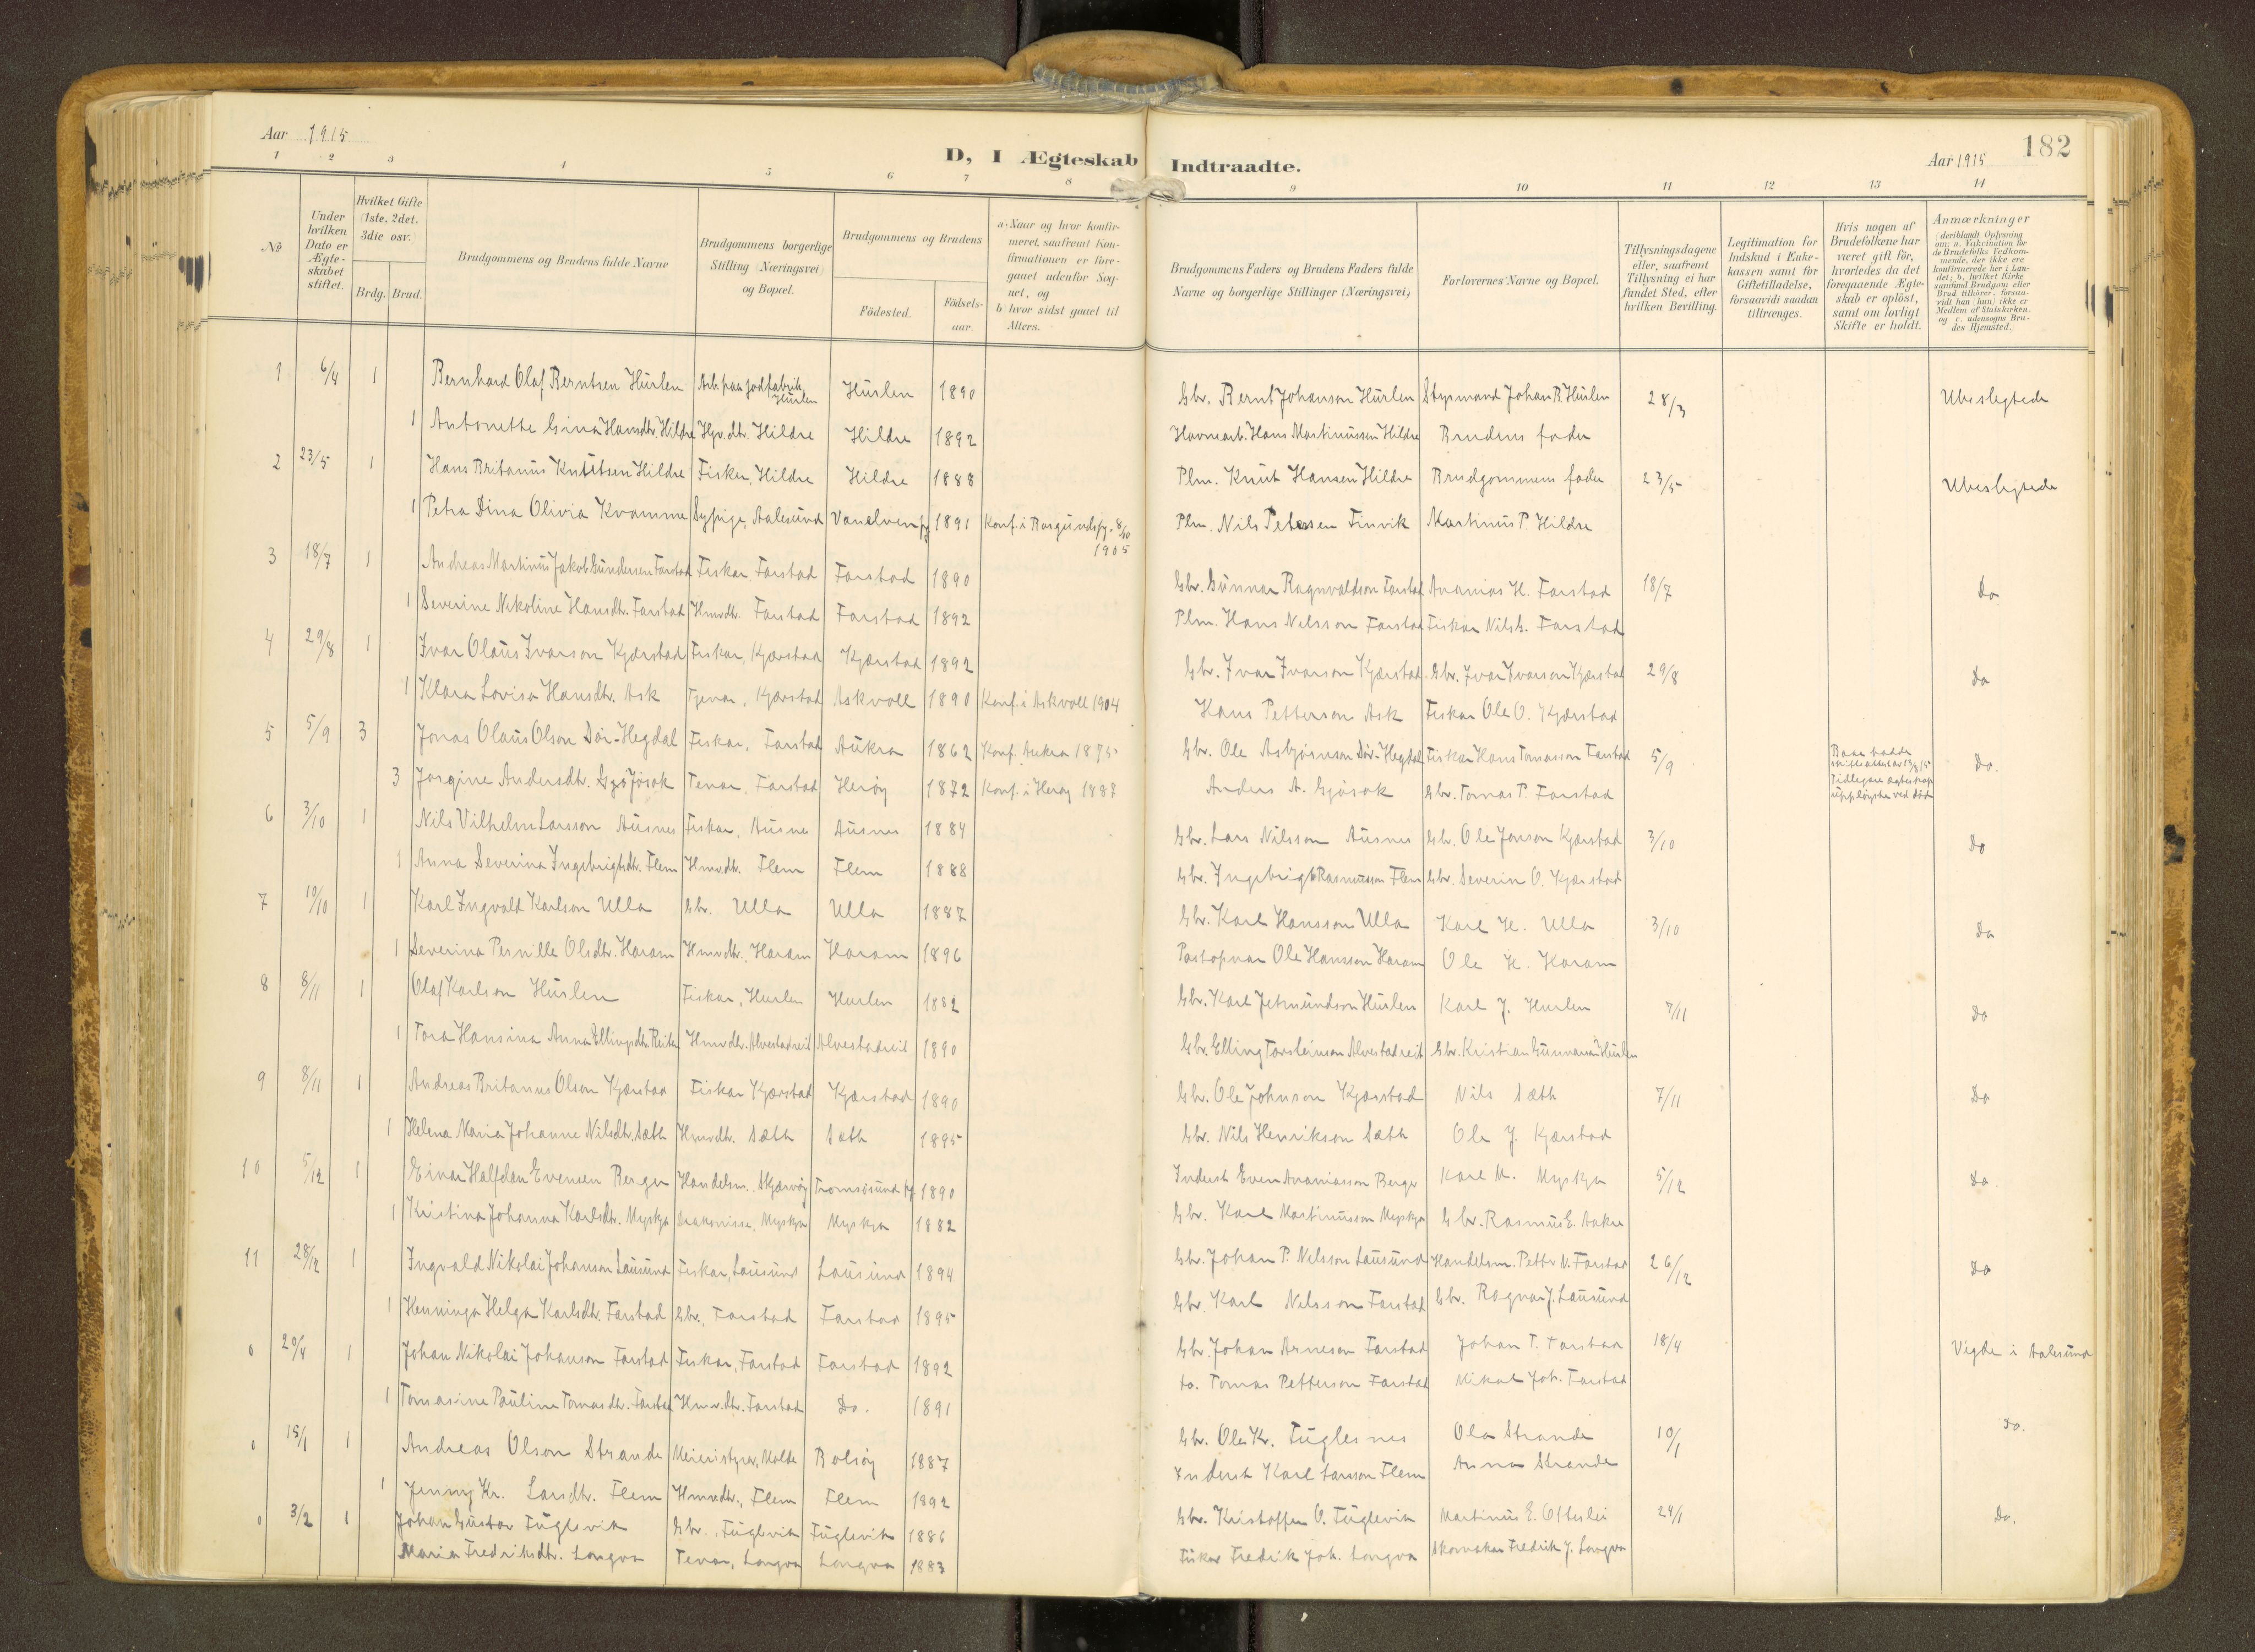 Aar 1915
D, I Ægteskab Indtraadte.
Aar 1915
182
1 2 3 4 5 6 7 8 9 10 11 12 13 14
No
Under hvilken Dato er Ægteskabet stiftet.
Hvilket Gifte (1ste, 2det, 3die osv.)
Brdg. Brud.
Brudgommens og Brudens fulde Navne
Brudgommens borgerlige Stilling (Næringsvei) og Bopæl.
Brudgommens og Brudens
Födested.
Födselsaar.
a. Naar og hvor konfirmeret, saafremt Konfirmationen er foregaaet udenfor Sognet, og b. hvor sidst gaaet til Alters.
Brudgommens Faders og Brudens Faders fulde Navne og borgerlige Stillinger (Næringsvei)
Forlovernes Navne og Bopæl.
Tillysningsdagene eller, saafremt Tillysning ei har fundet Sted, efter hvilken Bevilling.
Legitimation for Indskud i Enkekassen samt for Giftetilladelse, forsaavidt saadan tiltrænges.
Hvis nogen af Brudefolkene har været gift før, hvorledes da det foregaaende Ægteskab er oplöst, samt om lovligt Skifte er holdt.
Anmærkninger (deriblandt Oplysning om: a. Vakcination for de Brudefolks Vedkommende, der ikke ere konfirmerede her i Landet; b. hvilket Kirkesamfund Brudgom eller Brud tilhörer, forsaavidt han (hun) ikke er Medlem af Statskirken, og c. udensogns Brudes Hjemsted.)
1 6/4 1 Bernhard Olaf Berntsen Hurlen Arb. paa jodfabrik, Hurlen Hurlen 1890 Gbr. Bernt Johanson Hurlen Styrmand Johan B. Hurlen 28/3 Ubeslegtede
1 Antonette Gina Hansdtr. Hildre Hjv. dtr. Hildre Hildre 1892 Havnearb. Hans Martinussen Hildre Brudens fader
2 23/5 1 Hans Britanus Knutsen Hildre Fisker, Hildre Hildre 1888 Plm. Knut Hansen Hildre Brudgommens fader 23/5 Ubeslegtede
1 Petra Dina Olivia Kvamme Sypige, Aalesund Vanelven pg. 1891 Konf. i Borgunds pg. 8/10 1905 Plm. Nils Petersen Tinvik Martinus P. Hildre
3 18/7 1 Andreas Martinus Jakob Gundersen Farstad Fiskar, Farstad Farstad 1890 Gbr. Gunnar Ragnvaldson Farstad Ananias H. Farstad 18/7 Do
1 Severine Nikoline Hansdtr. Farstad Hmvdtr. Farstad Farstad 1892 Plm. Hans Nilsson Farstad Fiskar Nils H. Farstad
4 29/8 1 Ivar Olaus Ivarson Kjærstad Fiskar, Kjærstad Kjærstad 1892 Gbr. Ivar Ivarson Kjærstad Gbr. Ivar Ivarson Kjærstad 29/8 Do
1 Klara Lovisa Hansdtr. Ask Tjenar, Kjærstad Askvoll 1890 Konf. i Askvoll 1904 Hans Petterson Ask Fiskar Ole O. Kjærstad
5 5/9 3 Jonas Olaus Olson Dør-Hegdal Fiskar, Farstad Aukra 1862 Konf. Aukra 1875 Gbr. Ole Asbjørnson Dør-Hegdal Fiskar Hans Tomasson Farstad 5/9 Baae hadde skifteattest av 13/8 15 Tidlegare ægteskap uppløyste ved død Do.
3 Jorgine Andersdtr. Gjøsok Tenar, Farstad Herøy 1872 Konf. i Herøy 1887 Anders A. Gjøsok Gbr. Tomas P. Farstad
6 3/10 1 Nils Vilhelm Larsson Ausnes Fiskar, Ausnes Ausnes 1884 Gbr. Lars Nilsson Ausnes Gbr. Ole Jonson Kjærstad 3/10 Do
1 Anna Severina Ingebrigtsdtr. Flem Hmvdtr. Flem Flem 1888 Gbr. Ingebrigt Rasmusson Flem Gbr. Severin O. Kjærstad
7 10/10 1 Karl Ingvald Karlson Ulla Gbr. Ulla Ulla 1887 Gbr. Karl Hansson Ulla Karl H. Ulla 3/10 Do
1 Severina Pernille Olsdtr. Haram Hmvdtr., Haram Haram 1896 Postopnar Ole Hansson Haram Ole H. Haram
8 8/11 1 Olaf Karlson Hurlen Fiskar, Hurlen Hurlen 1882 Gbr. Karl Jetmundson Hurlen Karl J. Hurlen 7/11 Do
1 Tora Hansina Anna Ellingsdtr. Reiten Hmvdtr. Alvestadreit Alvestadreit 1890 Gbr. Elling Torsteinson Alvestadreit Gbr. Kristian Gunnarson Hurlen
9 8/11 1 Andreas Britanus Olson Kjærstad Fiskar Kjærstad Kjærstad 1890 Gbr. Ole Johnson Kjærstad Nils Sæth 7/11 Do
1 Helena Maria Johanne Nilsdtr. Sæth Hmvdtr. Sæth Sæth 1895 Gbr. Nils Henrikson Sæth Ole J. Kjærstad
10 5/12 1 Einar Halfdan Evensen Berger Handelsm., Skjærvøy Tromsøsund pg 1890 Inderst Even Ananiasson Berger Karl M. Myskja 5/12 Do.
1 Kristina Johanna Karlsdtr. Myskja Diakonisse, Myskja Myskja 1882 Gbr. Karl Martinusson Myskja Gbr. Rasmus E. Aakre
11 28/12 1 Ingvald Nikolai Johanson Lausund Fiskar, Lausund Lausund 1894 Gbr. Johan P. Nilsson Lausund Handelsm. Petter N. Farstad 26/12 Do
1 Henninga Helga Karlsdtr. Farstad Gbr., Farstad Farstad 1895 Gbr. Karl Nilsson Farstad Gbr. Ragnar J. Lausund
0 20/4 1 Johan Nikolai Johanson Farstad Fiskar, Farstad Farstad 1892 Gbr. Johan Arneson Farstad Johan T. Farstad 18/4 Vigde i Aalesund
1 Tomasine Pauline Tomasdtr. Farstad Hmv. dtr. Farstad Do. 1891 to. Tomas Petterson Farstad Mikal Joh. Farstad
0 15/1 1 Andreas Olson Strande Meieristyrer, Molde Bolsøy 1887 Gbr. Ole Kr. Fuglesnes Ola Strande 10/1 Do.
1 Jenny Kr. Larsdtr. Flem Hmvdtr., Flem Flem 1892 Inderst Karl Larsson Flem Anna Strande
0 3/2 1 Johan Gustav Fuglevik Gbr., Fuglevik Fuglevik 1886 Gbr. Kristoffer O. Fuglevik Martinus E. Otterlei 24/1 Do.
Maria Fredriksdtr. Longva Tenar, Longva Longva 1883 Fiskar Fredrik Joh. Longva Skomakar Fredrik J. Longva